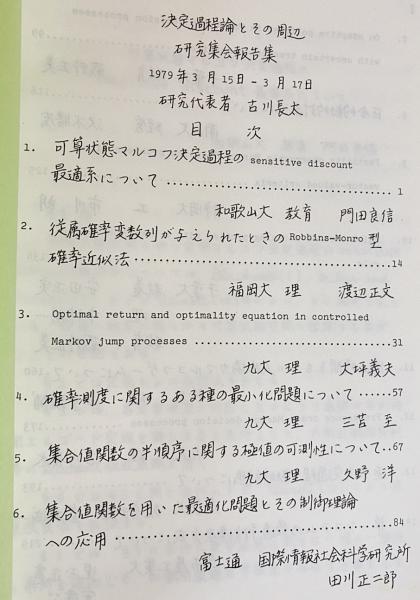 決定過程論とその周辺
研究集会報告集
1979年3月15日-3月17日
研究代表者 古川長太
目 次
1. 可算状態マルコフ決定過程の sensitive discount
最適系について ........................ 1
和歌山大 教育 門田良信
2. 従属確率変数列が与えられたときの Robbins-Monro 型
確率近似法 ........................ 14
福岡大 理 渡辺正文
3. Optimal return and optimality equation in controlled
Markov jump processes ........................ 31
九大 理 大坪義夫
4. 確率測度に関するある種の最小化問題について ...... 57
九大 理 三苫 至
5. 集合値関数の半順序に関する極値の可測性について .. 67
九大 理 久野 洋
6. 集合値関数を用いた最適化問題とその制御理論
への応用 ........................ 84
富士通 国際情報社会科学研究所
田川正二郎